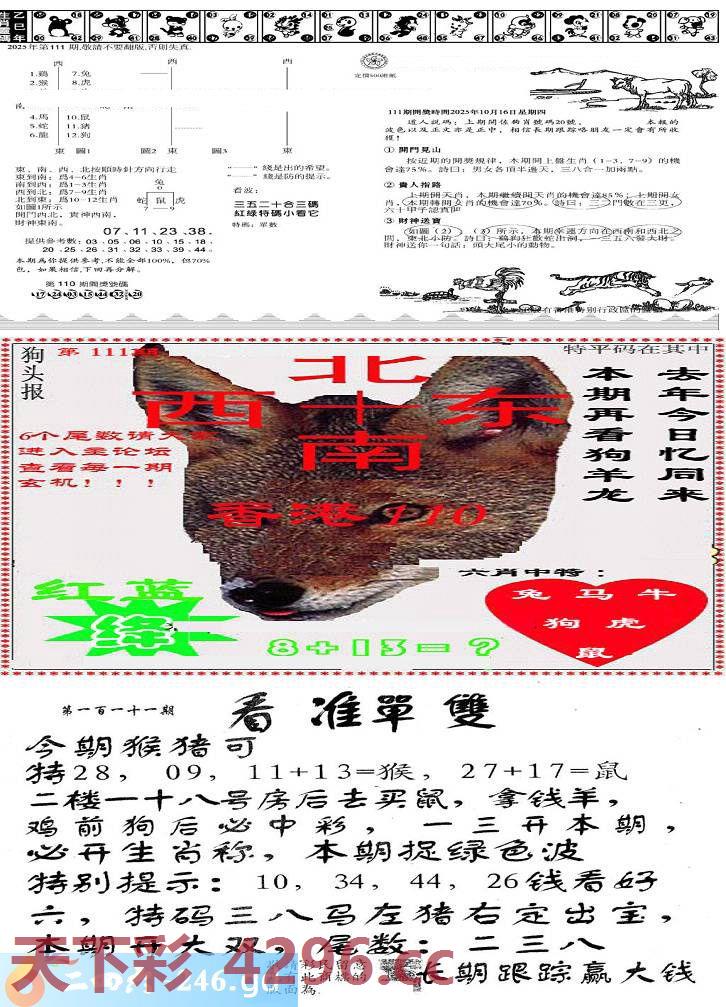 乙巳年
生肖靈碼
2025年第111期,敬請不要翻版,否則失真.
西
西
1.鷄 7.兔
2.猴 8.虎
南
4.馬 10.鼠
5.蛇 11.猪
6.龍 12.狗
東 圖1
圖2 東
圖3 東
東、南、西、北按順時針方向行走
東到南：爲4-6生肖
南到西：爲1-3生肖
西到北：爲7-9生肖
北到東：爲10-12生肖
如圖1所示
開門西北，貴神西南，
財神東南。
兔
0
蛇 鼠 虎
7 9
綫是出的希望。
綫是防的提示。
看波：
三五二十合三碼
紅緑特碼小看它
特碼：單數
07.11.23.38.
提供參考數：03.05.06.10.15.18
20.25.26.31.32.33.39.44
本期爲你提供參考,不能全部100%，但70%
包，如果相信,下回再分解。
第110期開獎號碼
17 24 03 15 44 32 20
定價500港紙
111期開獎時間2025年10月16日星期四
道人説碼：上期開依物肖號碼20號， 本報的
波色以及正文亦是正中，相信長期跟踪咯朋友一定會有所收
獲！
① 開門見山
按近期的開獎規律，本期開上盤生肖（1—3，7—9）的機
會達75%。詩曰：男女各頂半邊天，三八合一加兩點。
② 貴人指路
上期開天肖，本期繼續開天肖的機會達85%；七期開女
肖，本期轉開女肖的機會達70%。詩曰：三二門數在三更，
六十甲子認真吧
③ 財神送寶
如圖（2）（3）所示，本期幸運方向在西南和西北之
間，東北小防。詩曰：鷄狗狂歡蛇出洞，一三五六發大財。
財神送你一句話：頭大尾小的動物。
狗头报
第 111期
特平码在其中
北
西十东
南
去年今日忆同来
本期再看狗羊龙
6个尾数请大家
进入主论坛
查看每一期
玄机！！！
香港110
红 蓝
绿
六肖中特：
兔 马 牛
狗 虎
鼠
8+13=?
第一百一十一期
看准單雙
今期猴猪可
特28，09，11+13=猴，27+17=鼠
二楼一十八号房后去买鼠，拿钱羊，
鸡前狗后必中彩，一三开本期，
必开生肖称，本期捉绿色波
特别提示：10，34，44，26钱看好
六，特码三八马左猪右定出宝，
本期开大双，尾数：二三八
长期跟踪赢大钱
天下彩 4296.cc
246.gd